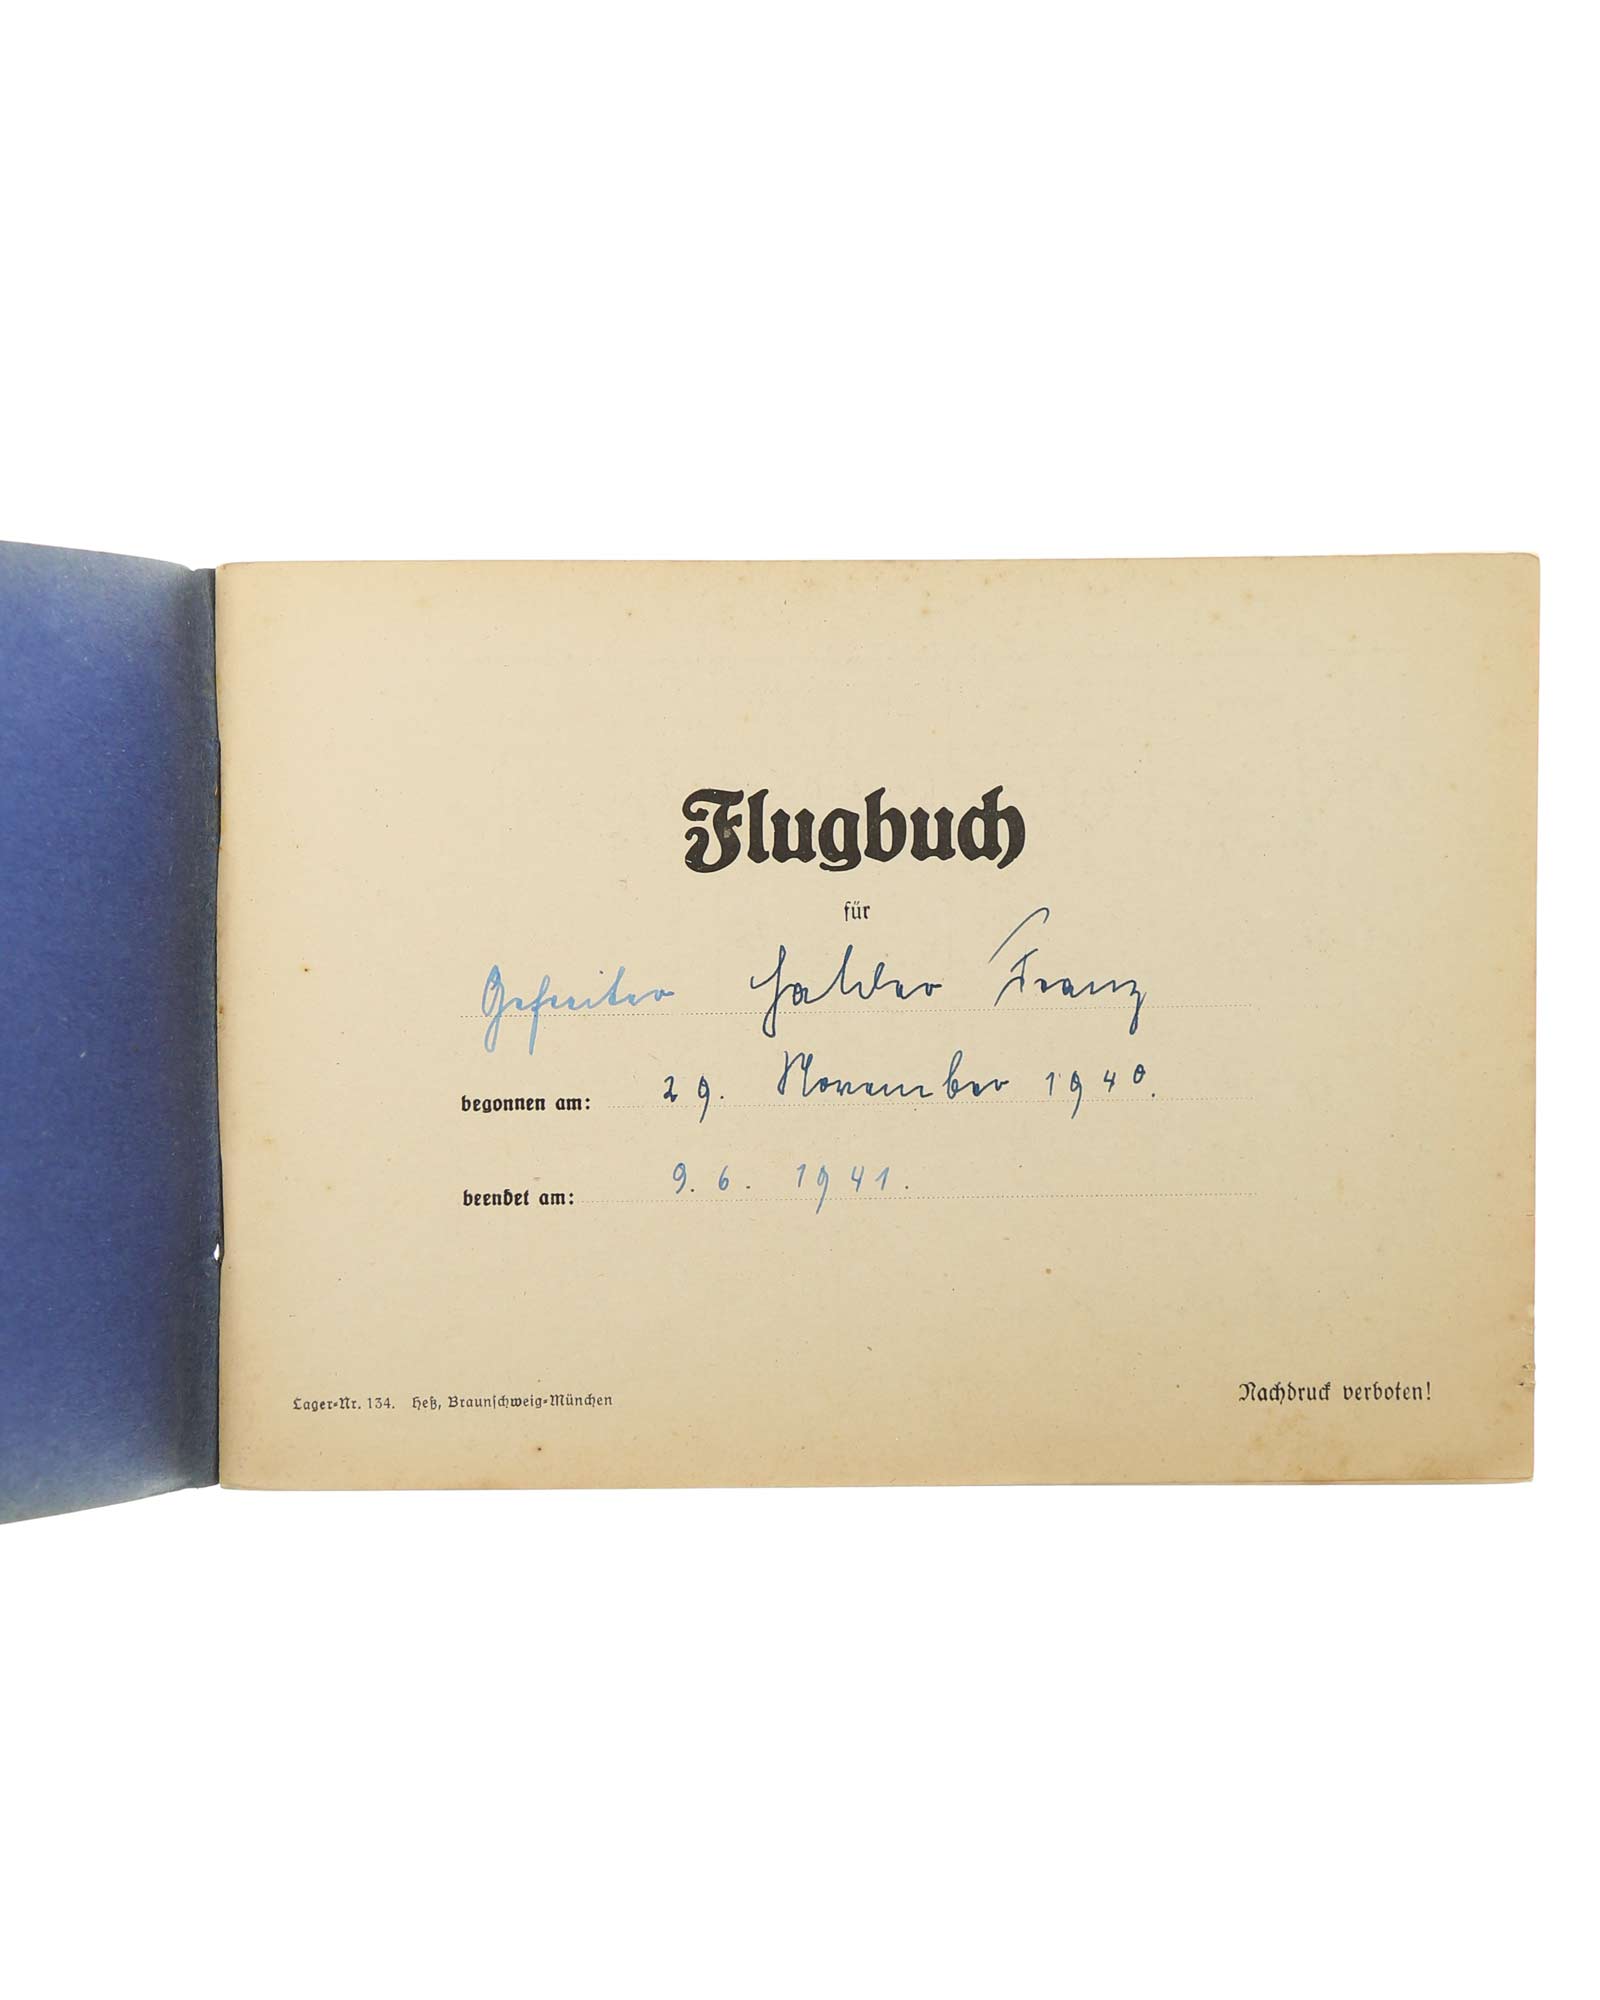 Flugbuch
für
Gefreiter Halder Franz
begonnen am: 29. November 1940.
beendet am: 9. 6. 1941.
Lager-Nr. 134. Heß, Braunschweig-München
Nachdruck verboten!